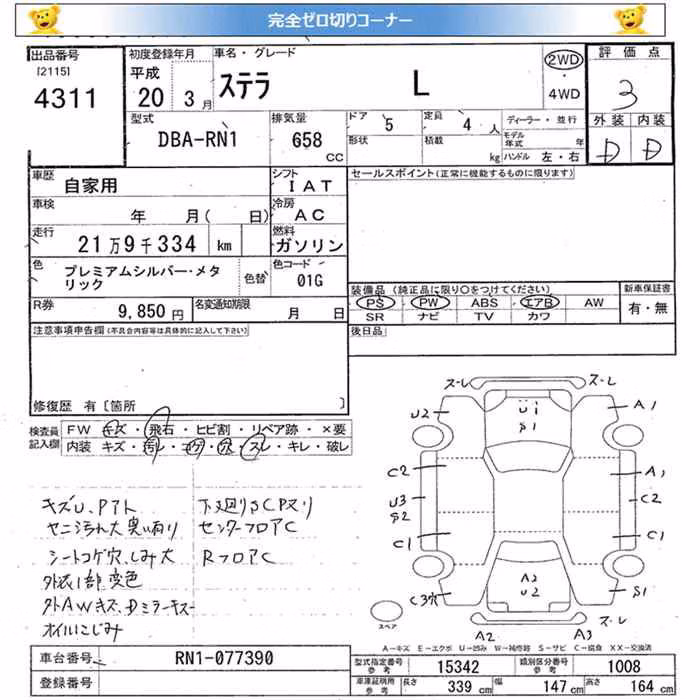 完全ゼロ切りコーナー
出品番号
[2115]
4311
初度登録年月
平成
20 3月
車名・グレード
ステラ L
2WD
・
4WD
評価点
3
外装 内装
D D
型式
DBA-RN1
排気量
658
CC
ドア 5
形状
定員 4 人
積載 kg
ディーラー・並行
モデル年式 年
ハンドル 左・右
車歴
自家用
シフト
IAT
車検
年 月( 日)
冷房
AC
走行
21万9千334 km
燃料
ガソリン
色
プレミアムシルバー・メタリック
色替
色コード
01G
R券
9,850円
名変通知期限
月 日
セールスポイント(正常に機能するものに限ります)
装備品 (純正品に限り○をつけてください)
PS PW ABS エアB AW
SR ナビ TV カワ
新車保証書
有・無
後日品
注意事項申告欄(不具合内容等は具体的に記入して下さい)
修復歴 有 [箇所 ]
検査員記入欄
FW キズ・飛石・ヒビ割・リペア跡・×要
内装 キズ・汚レ・コゲ・穴・スレ・キレ・破レ
キズU、Pアト
下廻りSCPヌリ
センターフロアC
シートコゲ穴、しみ大
RフロアC
外装1部変色
オイルにじみ
スーレ スーレ
U2 U1 S1 A1
C2 A1
U3 S2 C2
C1 C1
A2 U2
C3穴 S1
スペア
スーレ
A2 A3
A−キズ E−エクボ U−凹み W−補修跡 S−サビ C−腐食 XX−交換済
車台番号
RN1-077390
登録番号
型式指定番号 参考
15342
類別区分番号 参考
1008
車庫証明用 参考
長さ 339 cm
幅 147 cm
高さ 164 cm